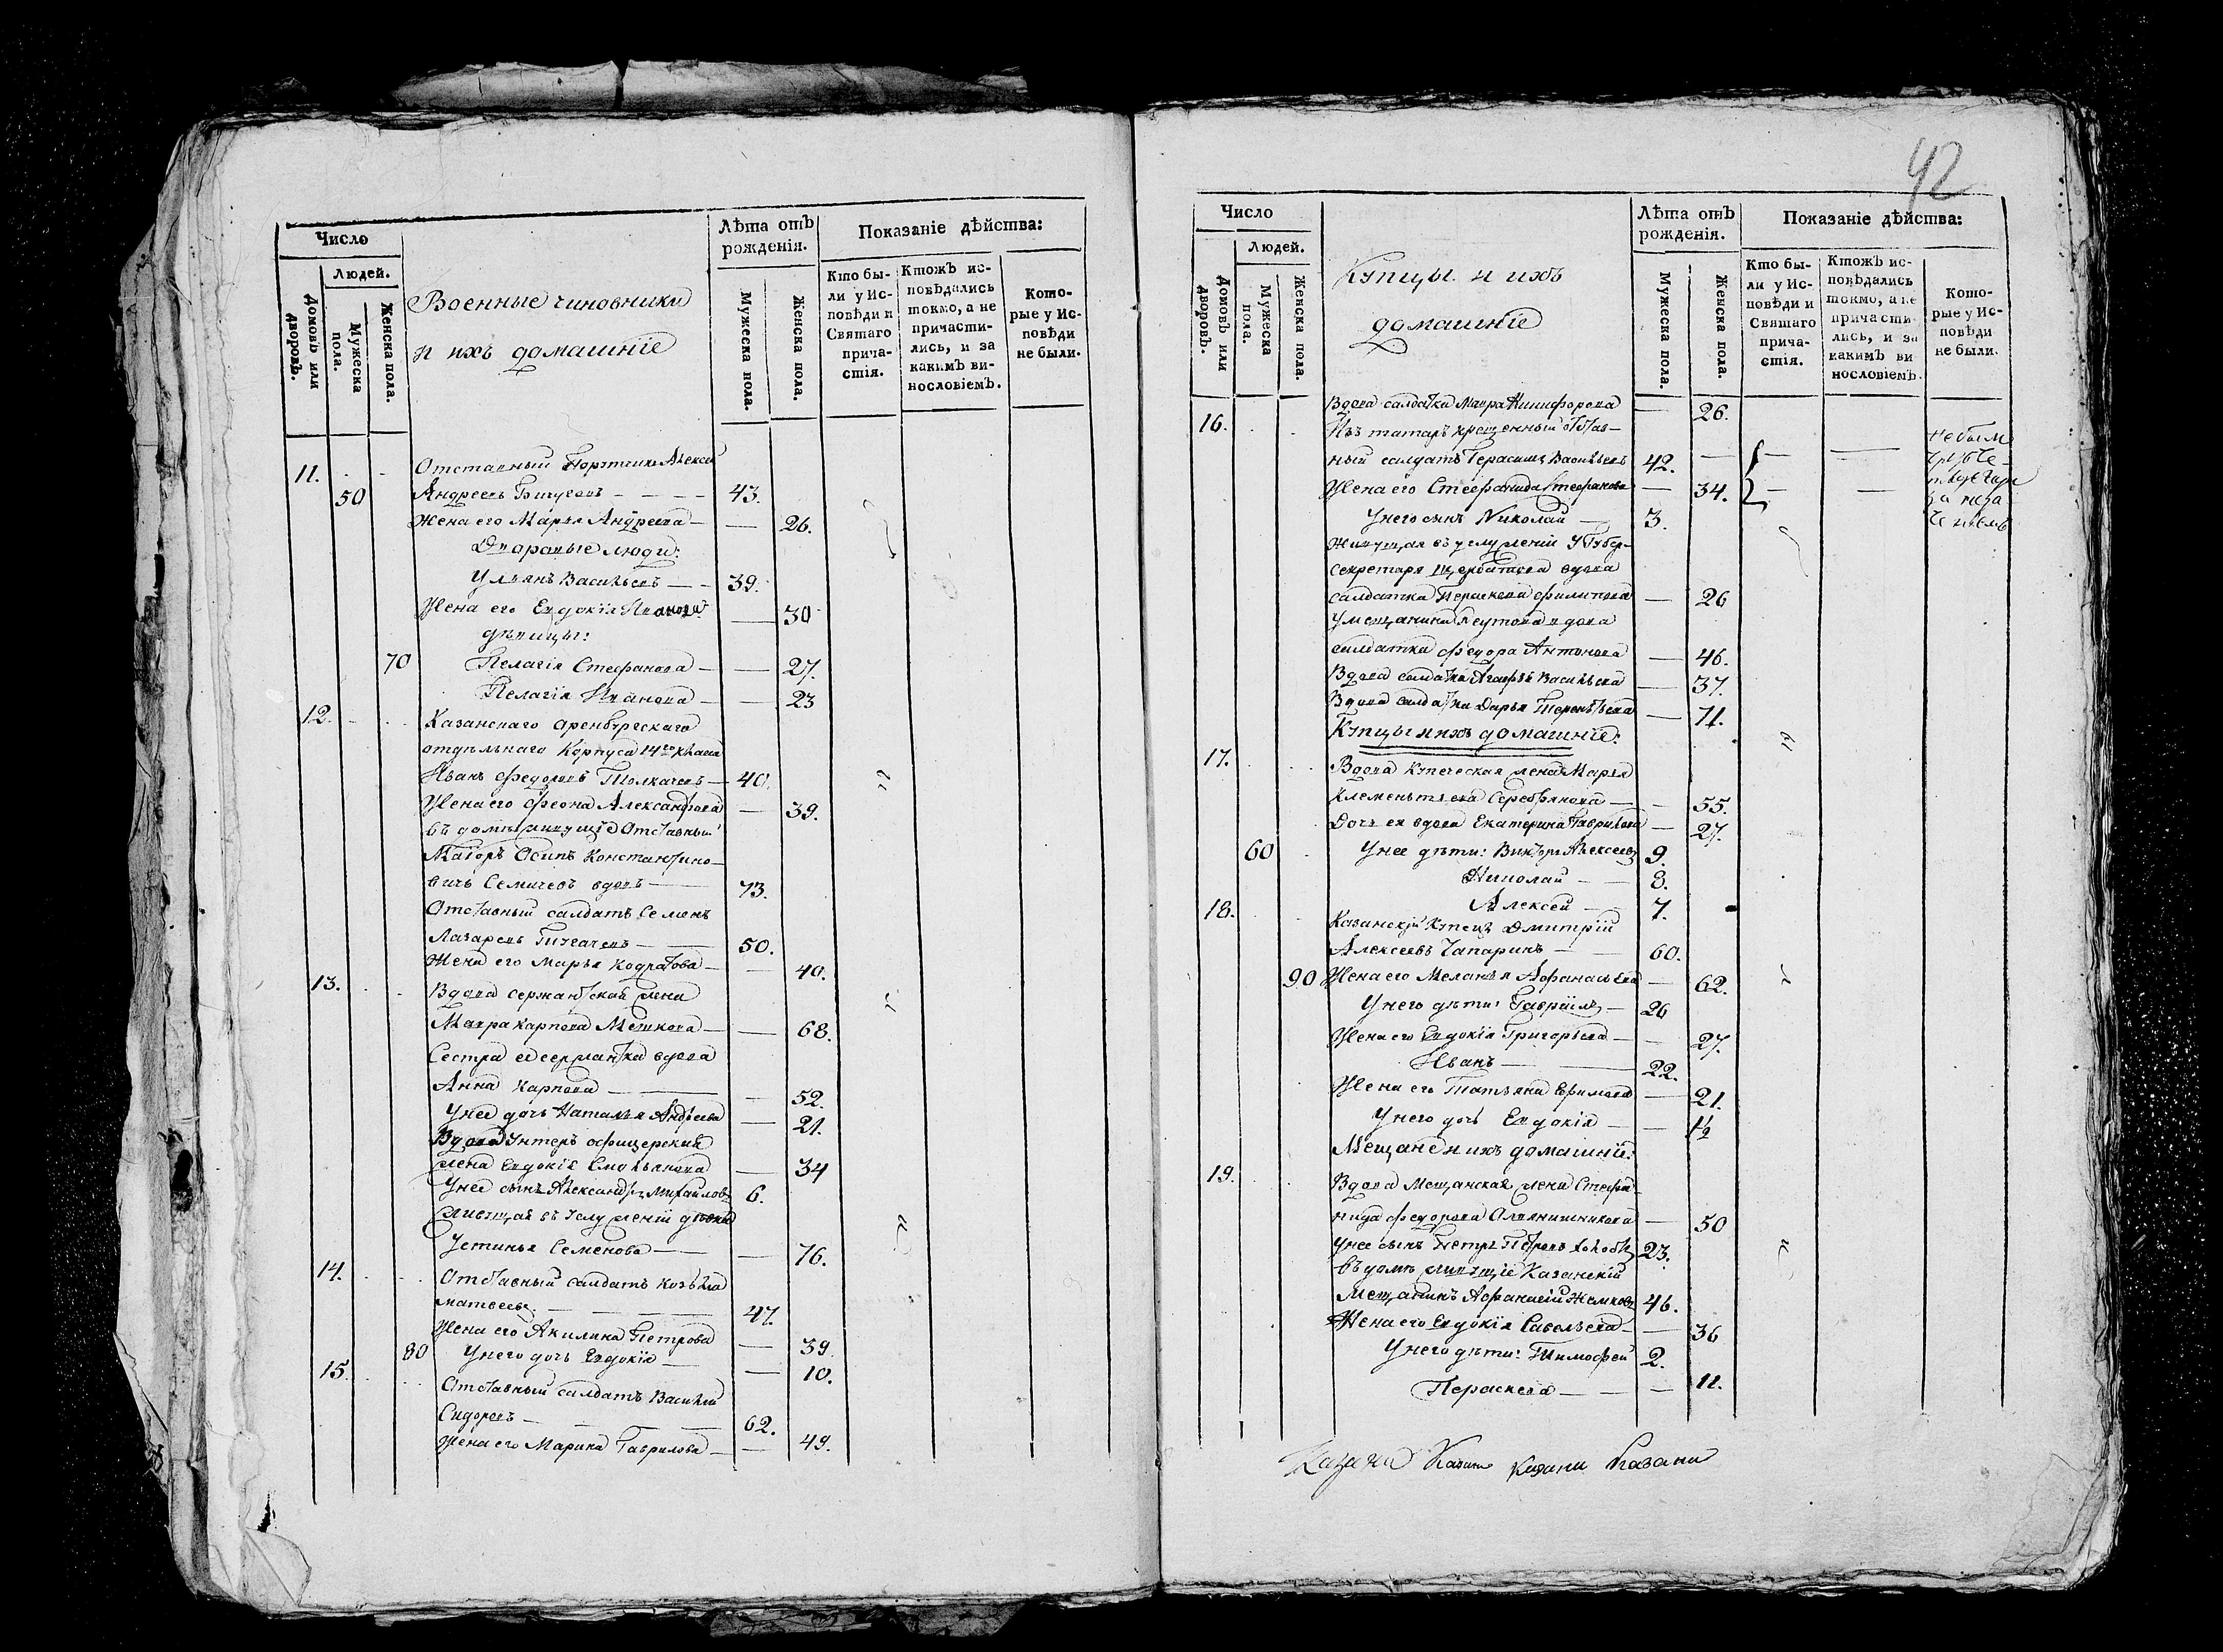 Число
Людей.
Домовъ или дворовъ.
Мужеска пола.
Женска пола.
Военные чиновники
и ихъ домашніе
Лѣта отъ
рожденія.
Мужеска пола.
Женска пола.
Показаніе дѣйства:
Кто бы-
ли у Ис-
повѣди и
Святаго
прича-
стія.
Ктожъ ис-
повѣдались
токмо, а не
причасти-
лись, и за
какимъ ви-
нословіемъ.
Кото-
рые у Ис-
повѣди
не были.
11. Отставный Порутчикъ Алексей
50 Андреевъ 43.
Жена его Марья Андреева — 26.
Дворовые люди:
Ульянъ Васильевъ — 39.
Жена его Евдокія Иванова — 30
дѣвицы:
70 Пелагія Стефанова — 27.
Пелагія Иванова — 23
12. Казанскаго Оренбургскаго
отдѣльнаго Корпуса 14го класа
Иванъ Федоровъ Толкачевъ — 40.
Жена его Феона Александрова — 39.
въ домѣ живущіе Отставный
Маіоръ Осипъ Константино-
вичъ Семичевъ вдовъ — 73.
Отставный солдатъ Семенъ
Лазаревъ — 50.
Жена его Марья Кодратова — 40.
13. Вдова сержантская жена
Мавра Карпова Мешкова — 68.
Сестра ея сержантка вдова
Анна Карпова — 52.
У нее дочь Наталья Андреева — 21.
Вдова Унтеръ офицерская
жена Евдокія Смольянова — 34
У нее сынъ Александръ Михайловъ 6.
Живущая въ услуженіи дѣвка
Устинья Семенова — 76.
14. Отставный салдатъ Козьма
Матвеевъ — 47.
Жена его Акилина Петрова — 39.
80 У него дочь Евдокія — 10.
15. Отставный салдатъ Василій
Сидоровъ — 62.
Жена его Марина Гаврилова — 49.
42
Число
Людей.
Домовъ или дворовъ.
Мужеска пола.
Женска пола.
Купцы и ихъ
домашніе
Лѣта отъ
рожденія.
Мужеска пола.
Женска пола.
Показаніе дѣйства:
Кто бы-
ли у Ис-
повѣди и
Святаго
прича-
стія.
Ктожъ ис-
повѣдались
токмо, а не
причасти-
лись, и за
какимъ ви-
нословіемъ.
Кото-
рые у Ис-
повѣди
не были.
Вдова салдатка Мавра Никифорова — 26.
16. Изъ татаръ крещенный отстав-
ный салдатъ Герасимъ Васильевъ 42. —
Жена его Стефанида Стефанова — 34.
У него сынъ Николай — 3.
не были
Живущая въ услуженіи у Губер-
секретаря Щербакова вдова
салдатка Параскева Филипова — 26
У мещанина Реутова вдова
салдатка Федора Антонова — 46.
Вдова салдатка Агафья Васильева — 37.
Вдова салдатка Дарья Терентьева — 71.
Купцы и ихъ домашніе:
17. Вдова купеческая жена Марья
Клементьева Серебрякова — 55.
Дочь ея вдова Екатерина Гаврилова — 27.
60 У нее дѣти: Викторъ Алексеевъ 9.
Николай — 8.
Алексей — 7.
18. Казанскій Купецъ Дмитрій
Алексеевъ Чапаринъ — 60.
90 Жена его Меланья Афанасьева — 62.
У него дѣти: Гавріилъ — 26
Жена его Евдокія Григорьева — 27.
Иванъ — 22.
Жена его Татьяна Ефимова — 21.
У него дочь Евдокія — 1½
Мещане и ихъ домашніе:
19. Вдова Мещанская жена Стефа-
нида Федорова — 50
У нее сынъ Петръ Петровъ 23.
въ домѣ живущіе Казанскій
Мещанинъ Афанасій 46.
Жена его Евдокія Савельева — 36
У него дѣти: Тимофей 2.
Параскева — 11.
Казани Казани Казани Казани